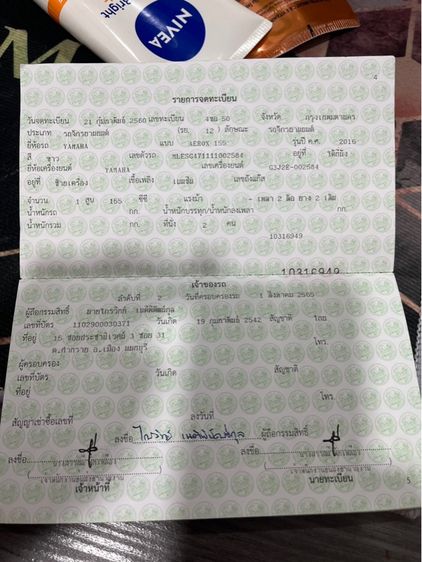 Bright
NIVEA
4
รายการจดทะเบียน
วันจดทะเบียน 21 กุมภาพันธ์ 2560 เลขทะเบียน 4ขผ 50 จังหวัด กรุงเทพมหานคร
ประเภท รถจักรยานยนต์ (รย. 12) ลักษณะ รถจักรยานยนต์
ยี่ห้อรถ YAMAHA แบบ AEROX 155 รุ่นปี ค.ศ. 2016
สี ขาว เลขตัวรถ MLESG471111002584 อยู่ที่ ใต้ที่นั่ง
ยี่ห้อเครื่องยนต์ YAMAHA เลขเครื่องยนต์ G3J2E-002584
อยู่ที่ ข้างเครื่อง เชื้อเพลิง เบนซิน เลขถังแก๊ส
จำนวน 1 สูบ 155 ซีซี แรงม้า - เพลา 2 ล้อ ยาง 2 เส้น
น้ำหนักรถ กก. น้ำหนักบรรทุก/น้ำหนักลงเพลา กก.
น้ำหนักรวม กก. ที่นั่ง 2 คน
10316949
10316949
เจ้าของรถ
ลำดับที่ 2 วันที่ครอบครองรถ 1 สิงหาคม 2565
ผู้ถือกรรมสิทธิ์ นายไกรวิทย์
เลขที่บัตร 1102900030371 วันเกิด 19 กุมภาพันธ์ 2542 สัญชาติ ไทย
ที่อยู่ 15 ซอยประชานิเวศน์ 3 ซอย 31 โทร.
ต.ท่าทราย อ.เมือง นนทบุรี
ผู้ครอบครอง
เลขที่บัตร วันเกิด สัญชาติ
ที่อยู่ โทร.
สัญญาเช่าซื้อเลขที่ ลงวันที่
ลงชื่อ ไกรวิทย์ ผู้ถือกรรมสิทธิ์
ลงชื่อ ลงชื่อ
เจ้าหน้าที่ นายทะเบียน
5